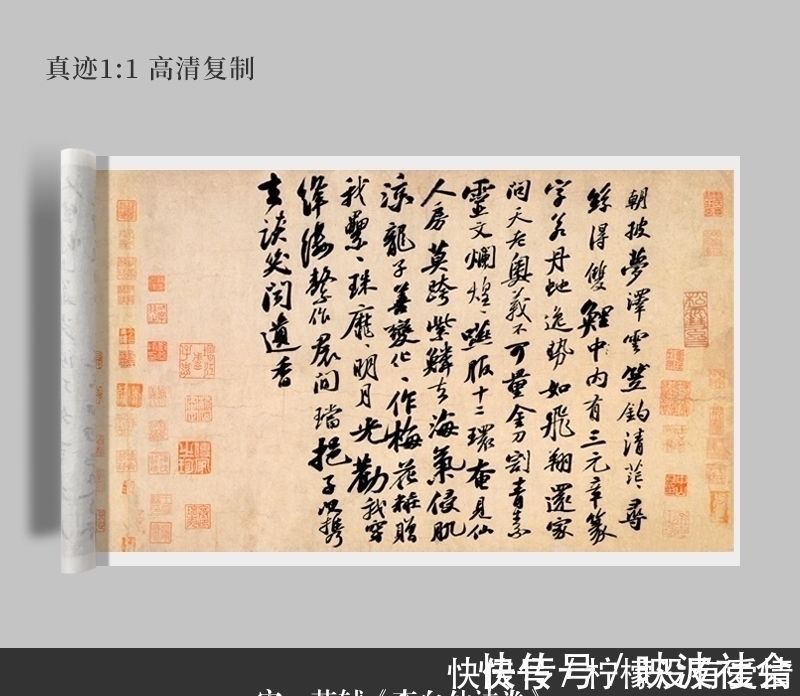 真迹1:1 高清复制
朝披夢澤雲笠釣清茫尋
絲得雙鯉中內有三元章篆
字若丹蛇逸勢如飛翔還家
問天老奧義不可量金刀割青素
靈文爛煌煌嚥服十二環奄見仙
人房莫跨紫鱗去海氣侵肌
涼龍子善變化化作梅花粧贈
我纍纍珠靡靡明月光勸我穿
絳縷繫作裙間璫挹子以攜
去談笑聞遺香
快传号/映波社会